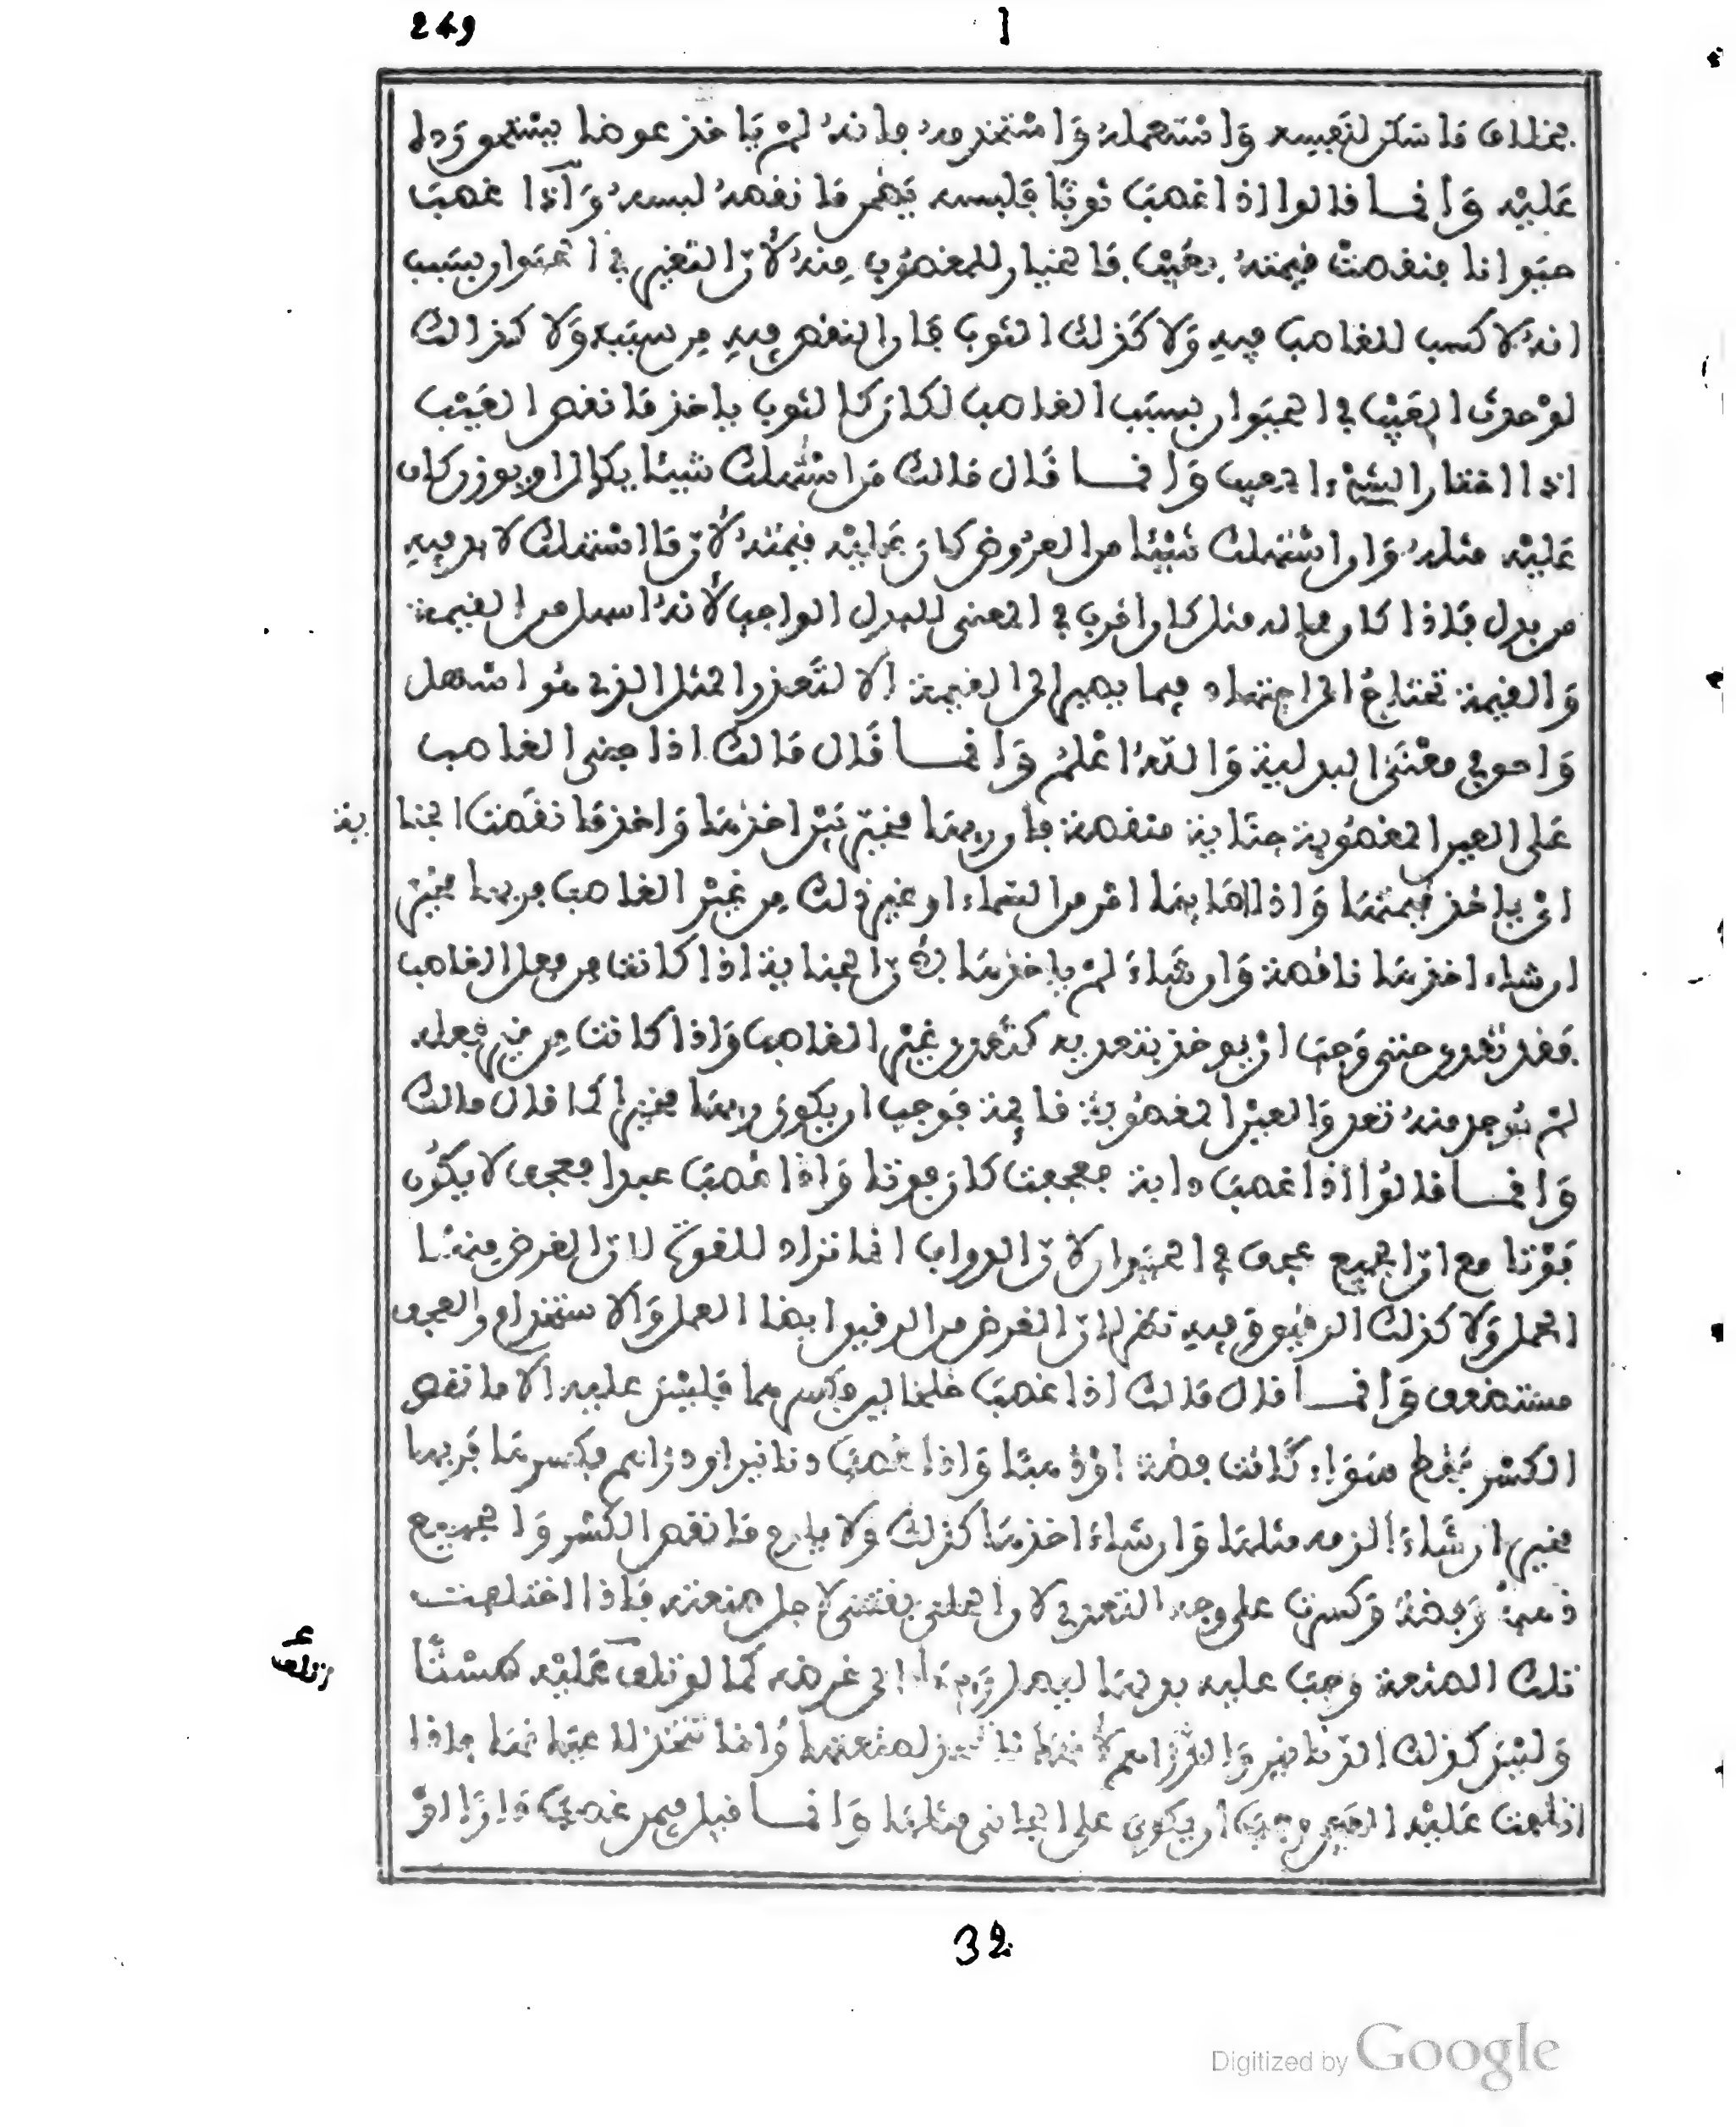 249
بخلاف ما سكن لنفسه وَاسْتعمله وَاستخدمه فانهُ لمْ يَاخذ عوضا يستحق رَده
عَليْه وَانمـا قالوا اذا غصبَ ثوبًا فلبسه فيَهِم مَا نقصهُ لبسهُ وَاذا غصبَ
حيَوانا فنقصتْ قيمتهُ بعَيْب فالخيار للمغصُوب مِنهُ لأنّ التغير في الحيَوان بسَبب
انهُ لا كسب للغاصب فيهِ وَلا كذلك الثوب فان النقص فِيهِ مِن سببه وَلا كذالك
لوْ حدث العَيْب في الحيَوان بسبَب الغاصب لكان كالثوب ياخذ مَا نقص العَيْب
اذا اختار الشىْء المعيب وَانمـا قال مَالك مَن اسْتهلك شيئا يكال او يوزن كان
عَليْه مثله وَان اسْتهلك شيْئا من العرُوض كان عَليْه قيمتهُ لأنّ مَا استهلك لا بد فيه
من بدل فاذا كان مما له مثل كان اقرب في المعنى للبدل الواجب لأنهُ اسهل من القيمة
وَالقيمة تحتاجُ الى اجتهاد فيما يصير الى القيمة الا لتعذر المثل الذي هُو اسْهل
وَاحوى معْنَى البدلية وَاللهُ اعْلمُ وَانمـا قال مَالك اذا جنى الغاصب
عَلى العين المغصُوبة جنَاية منقصة فان ربهَا مخيّر بَيْن اخذهَا وَاخذ مَا نقصَت الجنا ية
اوْ ياخُذ قيمتهَا وَاذا اصَابهَا امْر من السّماء او غير ذلك مِن غَيْر الغاصب فربها مخيّر
ان شاء اخذهَا ناقصة وَان شَاءَ لمْ ياخذهَا لأنّ الجناية اذا كانت مِن فعل الغاصب
فقد تعَدى حتى وَجبَ انْ يوخذ بتعديه كتعَدى غيْر الغاصب وَاذا كانت مِن غير فعله
لمْ يُوجد منهُ تعد وَالعيْن المغصُوبة قائمة فوَجب ان يكون ربهَا مخيرا كما قال مالك
وَانمـا قالوُا اذا غصبَ دابة فعجفت كان فوتا وَاذا غصبَ عبدا فعجف لا يكوُن
فوْتا مع انّ الجميع عجف في الحيَوان لانّ الدواب انما تراد للقوّة لانّ الغرض منهَا
الحمل وَلا كذلك الرقيق وَفيه نظر لانّ الغرض من الرقيق ايضا العمل وَالاستخدام والعجف
مستضعف وَانمـا قال مَالك اذا غصبَ خلخالين فكسرهما فليْسَ عليه الا ما نقص
الكسْر فقط سَوَاء كانت فضة اوْ ذهبًا وَاذا غصبَ دنانير او دراهم فكسرهَا فربها
مخير ان شَاءَ الزمه مثلهَا وَان شَاءَ اخذهَا كذلك وَلا يلزم مَا نقص الكسْر وَالجميع
ذهبٌ وَفضة وَكسرت على وجه التعدي لان الحلى يقتنى لاجل صنعته فاذا اختلفت
تلك الصنعة وجبَ عليه بدلهَا ليصل رَبهَا الى غرضه كما لو تلف عَليْه كسْبًا
عـ
رتلف
وَليْسَ كذلك الدّنانير وَالدّرَاهم لأنهَا لا تتخذ لصنعتهَا وَانما تتخذ لاعيَانهَا فاذا
اتلفت عَليْه العَين وجبَ ان يكون على الجانى مثلهَا وَانمـا قيل فيمن غصبَ دَارًا اوْ
32
Digitized by Google